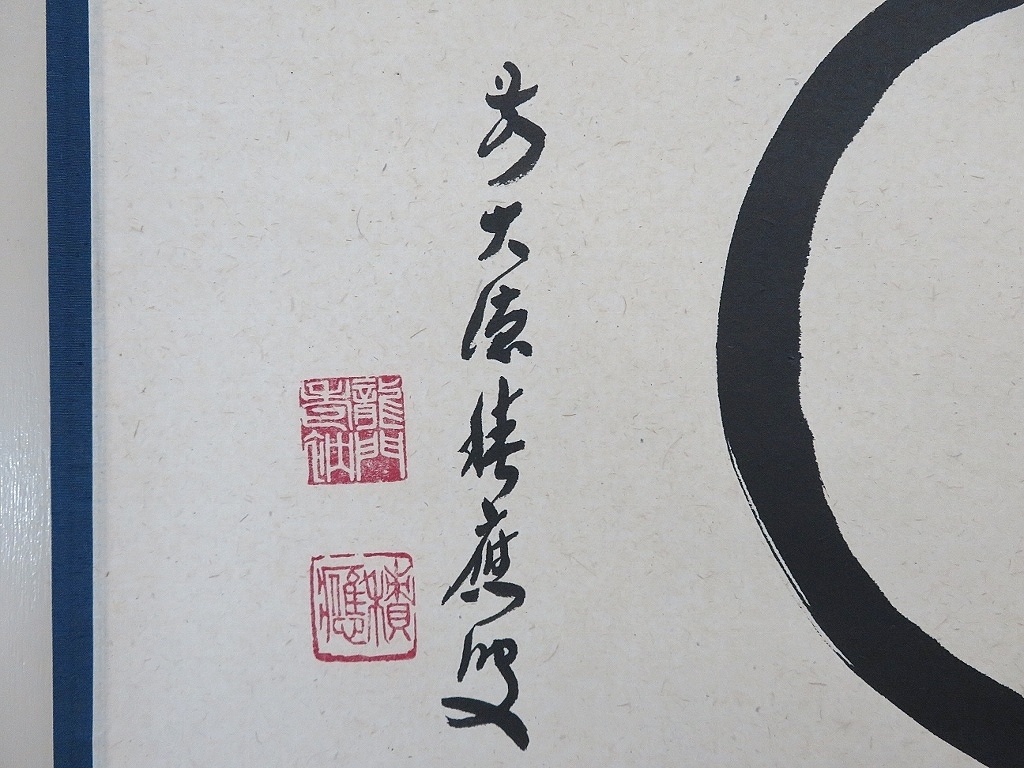 前大徳積應叟
龍門
積應